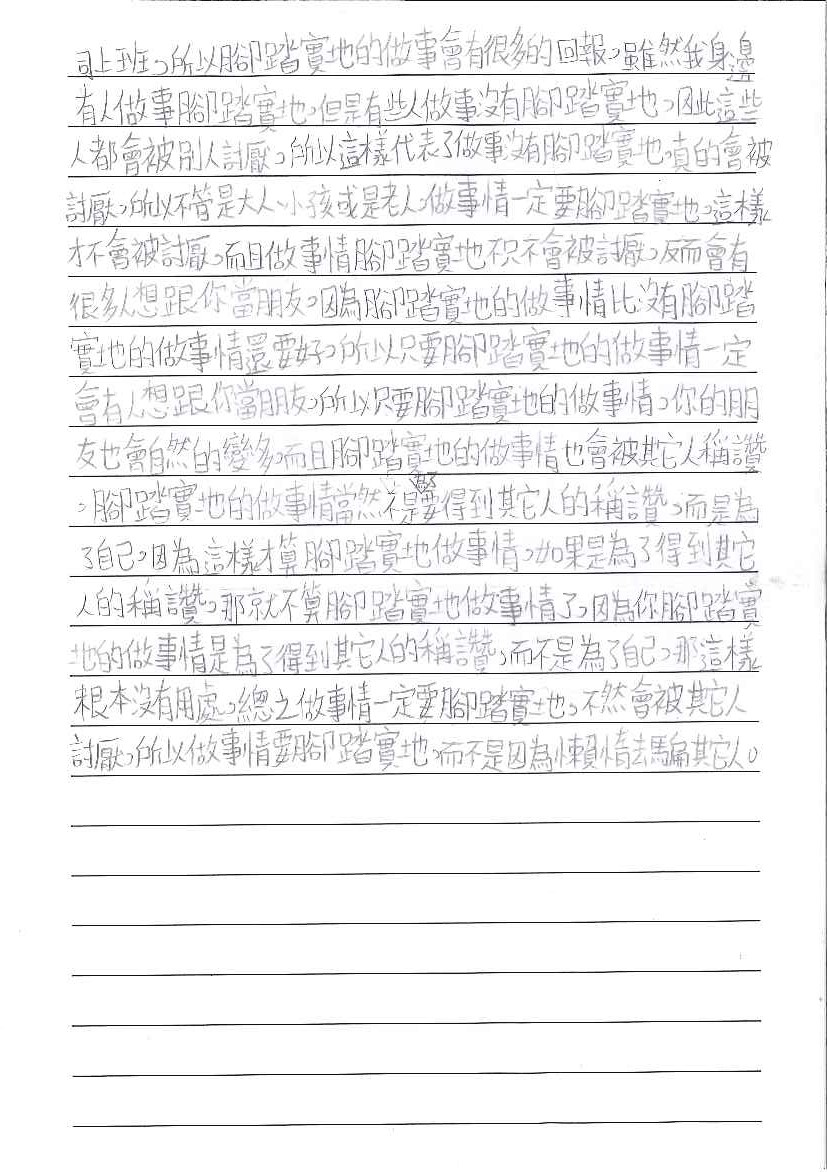 司上班，所以腳踏實地的做事會有很多的回報，雖然我身邊
有人做事腳踏實地，但是有些人做事沒有腳踏實地，因此這些
人都會被別人討厭，所以這樣代表了做事沒有腳踏實地，真的會被
討厭，所以不管是大人、小孩或是老人，做事情一定要腳踏實地，這樣
才不會被討厭，而且做事情腳踏實地不只不會被討厭，反而會有
很多人想跟你當朋友，因為腳踏實地的做事情比沒有腳踏
實地的做事情還要好，所以只要腳踏實地的做事情一定
會有人想跟你當朋友，所以只要腳踏實地的做事情，你的朋
友也會自然的變多，而且腳踏實地的做事情也會被其它人稱讚
，腳踏實地的做事情當然不是為了要得到其它人的稱讚，而是為
了自己，因為這樣才算腳踏實地做事情，如果是為了得到其它
人的稱讚，那就不算腳踏實地做事情了，因為你腳踏實
地的做事情是為了得到其它人的稱讚，而不是為了自己，那這樣
根本沒有用處，總之做事情一定要腳踏實地，不然會被其它人
討厭，所以做事情要腳踏實地，而不是因為懶惰去騙其它人。